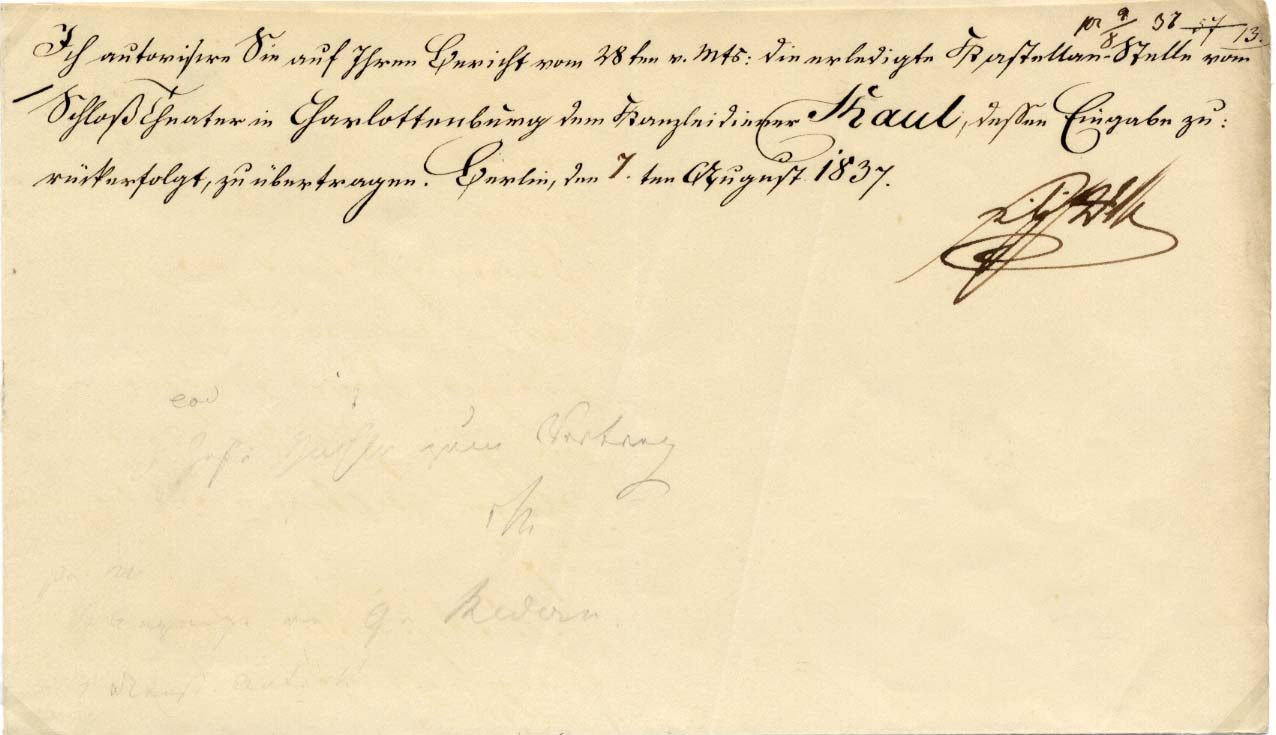 pr 9/8 37 57 13.
Ich autorisire Sie auf Ihren Bericht vom 28ten v. Mts: die erledigte Kastellan-Stelle vom
Schloß Theater in Charlottenburg dem Kanzleidiener Kaul, dessen Eingabe zu:
rückerfolgt, zu übertragen. Berlin, den 7. ten August 1837.
eod
zum Vortrag
Redern